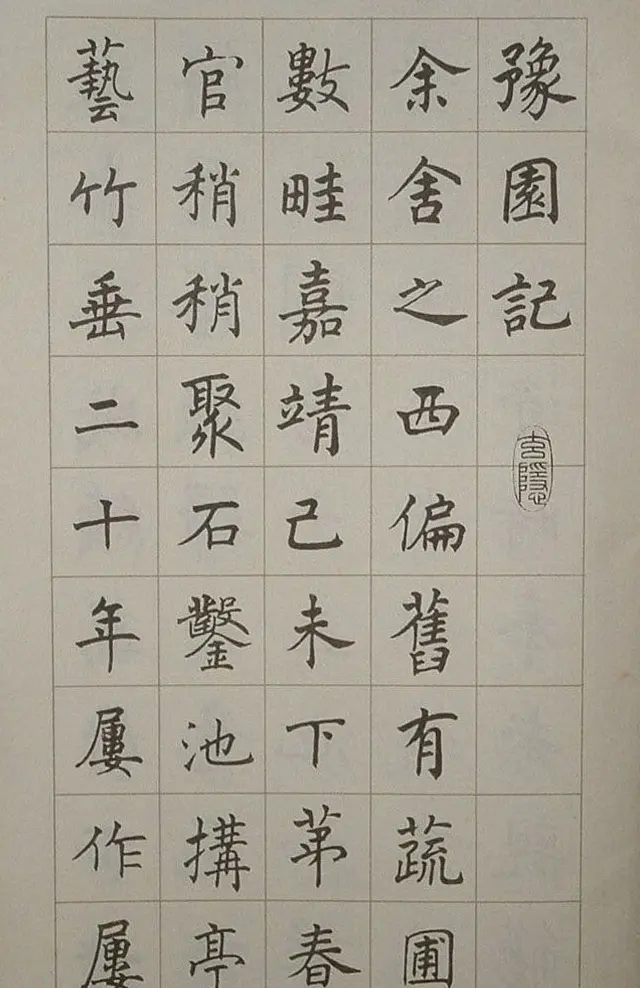 豫園記
余舍之西偏舊有蔬圃
數畦嘉靖己未下苐春
官稍稍聚石鑿池搆亭
藝竹垂二十年屢作屢